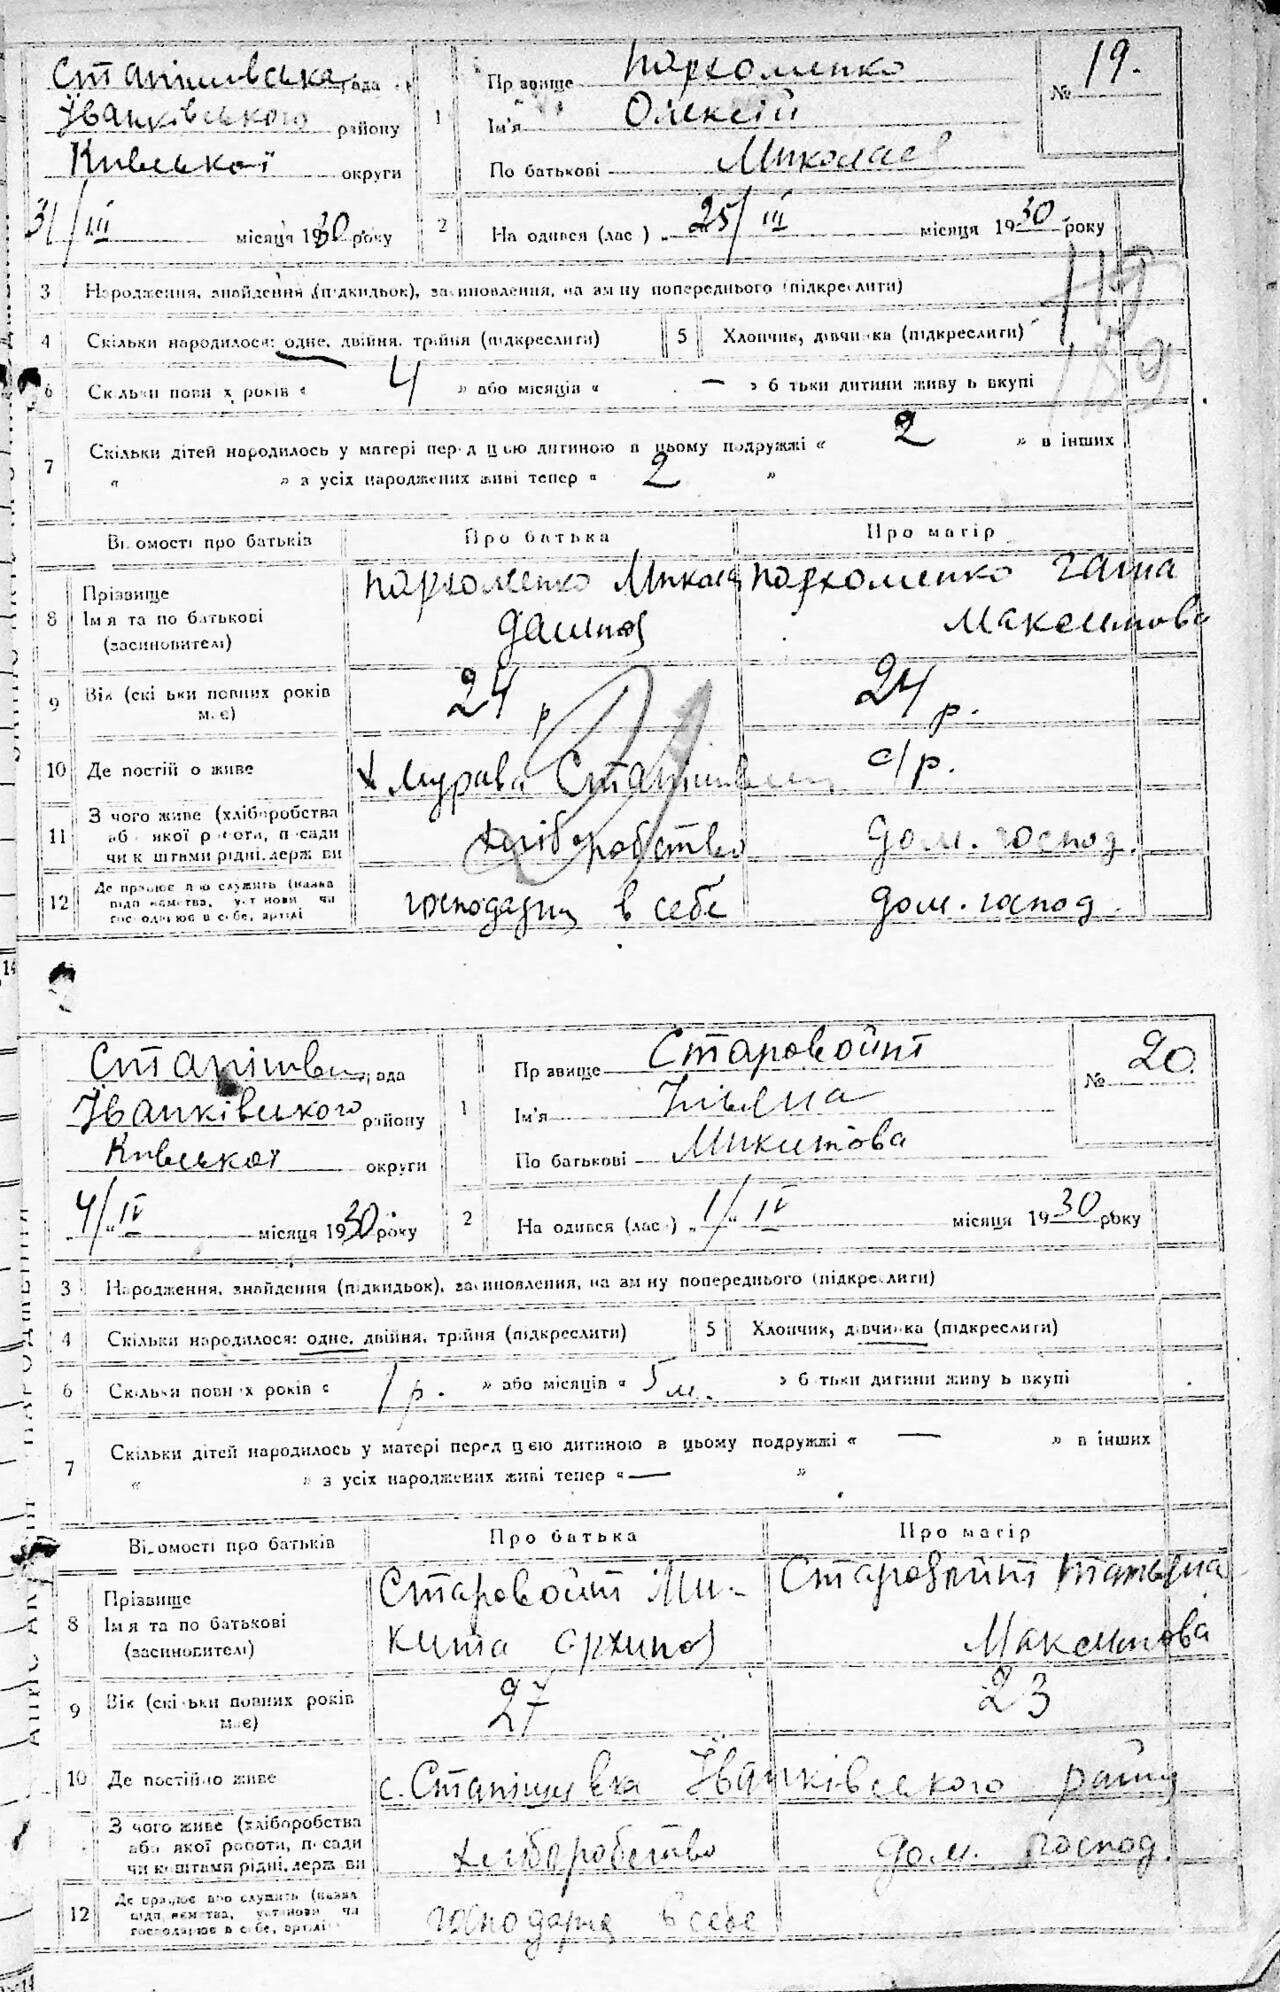 Станішивська рада
Іванківського району
Київської округи
31/III місяця 1930 року
1 Прізвище Пархоменко
Ім'я Олексій
По батькові Миколаєв
№ 19.
2 Народився (лась) 25/III місяця 1930 року
3 Народження, знайдення (підкидьок), засиновлення, на заміну попереднього (підкреслити)
4 Скільки народилося: одне, двійня, трійня (підкреслити) 5 Хлопчик, дівчинка (підкреслити)
6 Скільки повних років « 4 » або місяців « — » батьки дитини живуть вкупі
7 Скільки дітей народилось у матері перед цією дитиною в цьому подружжі « 2 » в інших
« » з усіх народжених живі тепер « 2 »
Відомості про батьків Про батька Про матір
8 Прізвище Ім'я та по батькові (засиновителі) Пархоменко Микола Пархоменко Гаша
Максимова
9 Вік (скільки повних років має) 24 р 24 р.
10 Де постійно живе х Мурава с/р.
11 З чого живе (хліборобства або якої роботи, посади чи коштами рідні, держави хліборобство дом. господ.
12 Де працює або служить (назва підприємства, установи чи господарює в себе, артілі господарка в себе дом. господ.
рада
Іванківського району
Київської округи
4/IV місяця 1930 року
1 Прізвище Старовойт
Ім'я Уляна
По батькові Микитова
№ 20.
2 Народився (лась) 1/IV місяця 1930 року
3 Народження, знайдення (підкидьок), засиновлення, на заміну попереднього (підкреслити)
4 Скільки народилося: одне, двійня, трійня (підкреслити) 5 Хлопчик, дівчинка (підкреслити)
6 Скільки повних років « 1 р. » або місяців « 5 м. » батьки дитини живуть вкупі
7 Скільки дітей народилось у матері перед цією дитиною в цьому подружжі « — » в інших
« » з усіх народжених живі тепер « — »
Відомості про батьків Про батька Про матір
8 Прізвище Ім'я та по батькові (засиновителі) Старовойт Ми- Старовойт Татьяна
кита Архипов Максимова
9 Вік (скільки повних років має) 27 23
10 Де постійно живе с. Станішивка Іванківського району
З чого живе (хліборобства або якої роботи, посади чи коштами рідні, держави хліборобство дом. господ.
12 Де працює або служить (назва підприємства, установи чи господарює в себе, артілі господарка в себе